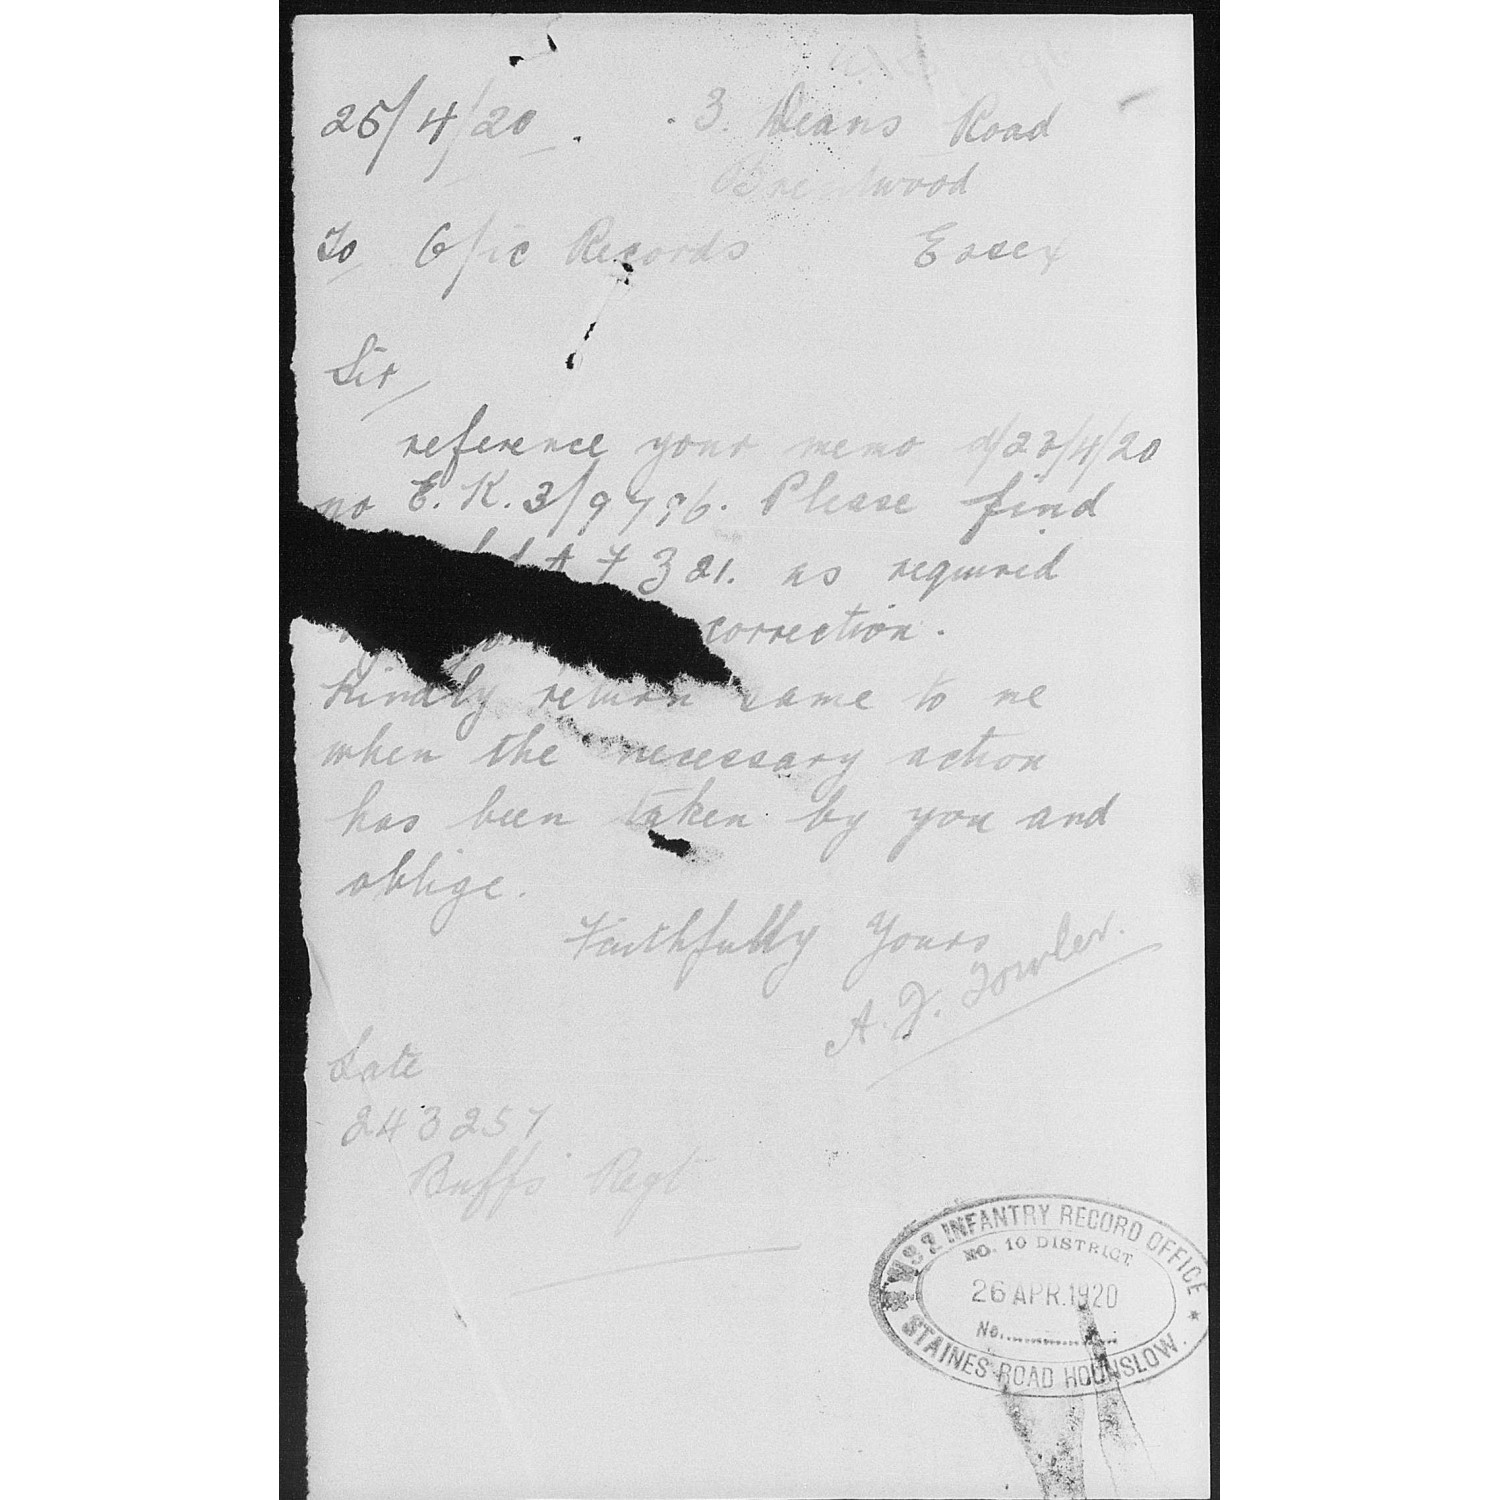 25/4/20 . 3. Deans Road
Brentwood
To O/ic Records Essex
Sir,
reference your memo d/23/4/20
no E.K.3/9796. Please find
A F Z 21. as required
correction.
Kindly return same to me
when the necessary action
has been taken by you and
oblige.
Faithfully Yours
A. J. Fowler.
Late
243257
Buffs Regt
INFANTRY RECORD OFFICE
NO. 10 DISTRICT.
26 APR. 1920
No.
STAINES ROAD HOUNSLOW.